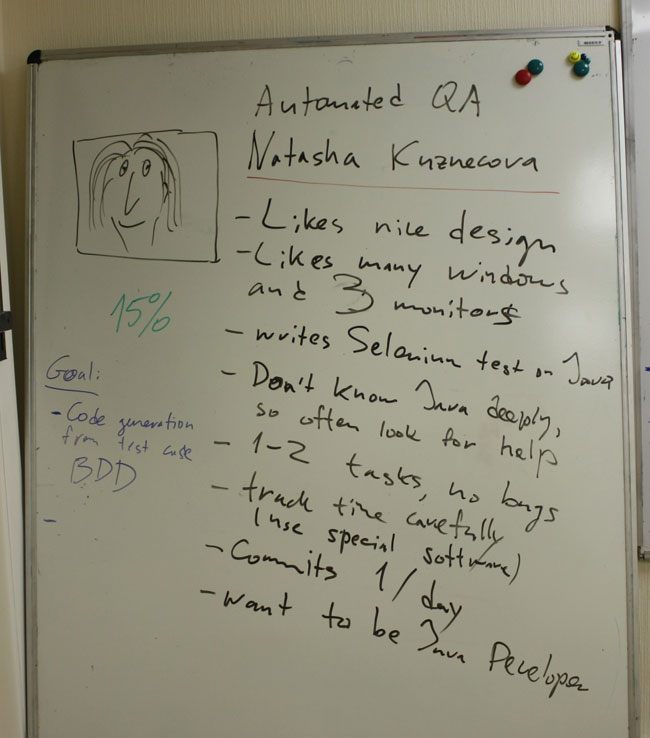 Automated QA
Natasha Kuznecova
- Likes nice design
- Likes many windows
and 3 monitors
- writes Selenium test on Java
- Don't know Java deeply,
so often look for help
- 1-2 tasks, no bugs
- track time carefully
(use special software)
- Commits 1/day
- want to be Java Developer
15%
Goal:
- Code generation
from test case
BDD
-